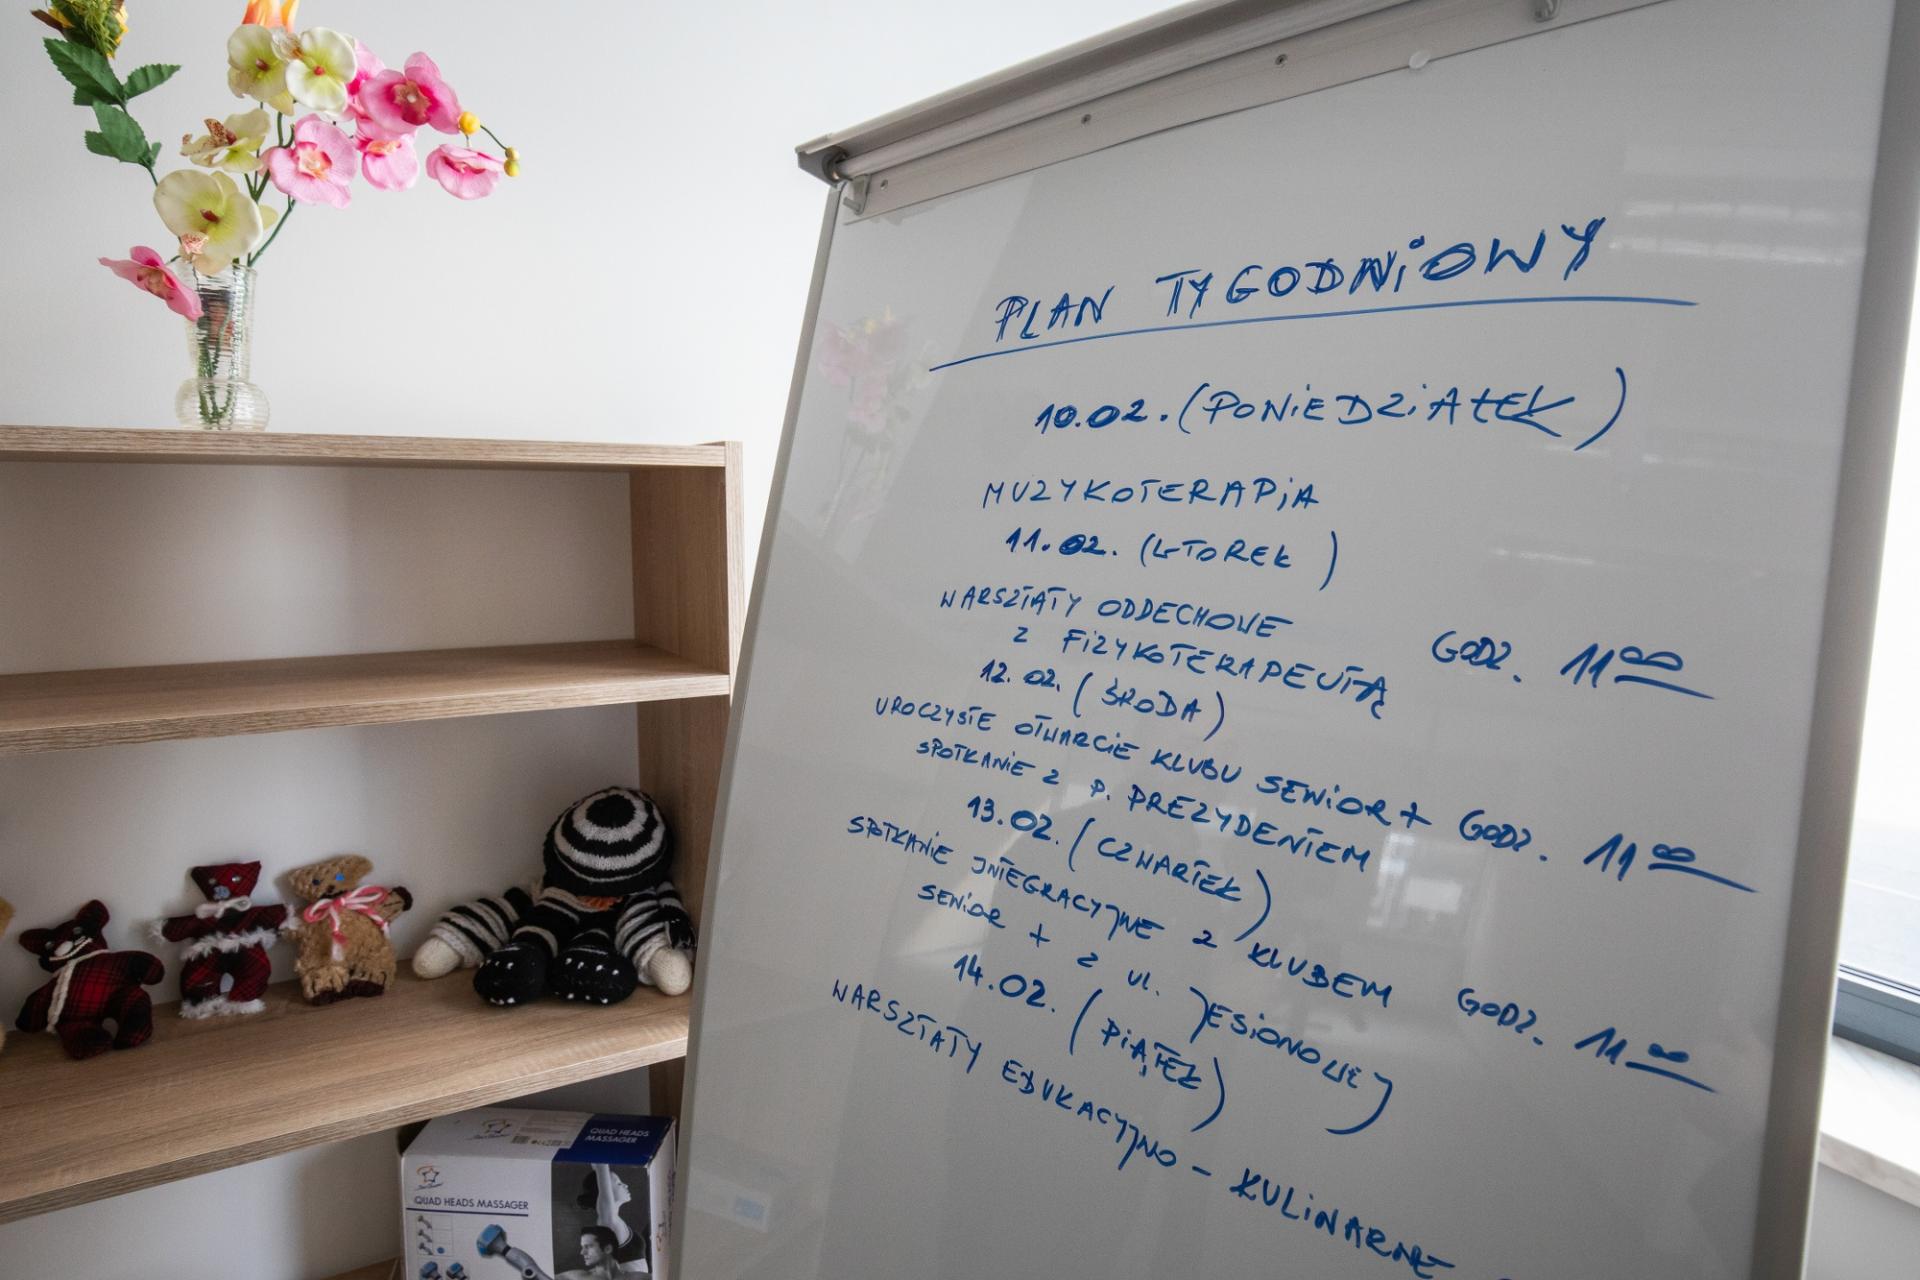 PLAN TYGODNIOWY
10.02. (PONIEDZIAŁEK)
MUZYKOTERAPIA
11.02. (WTOREK)
WARSZTATY ODDECHOWE
Z FIZYKOTERAPEUTĄ GODZ. 11 00
12.02. (ŚRODA)
UROCZYSTE OTWARCIE KLUBU SENIOR +
SPOTKANIE Z P. PREZYDENTEM GODZ. 11 00
13.02. (CZWARTEK)
SPOTKANIE INTEGRACYJNE Z KLUBEM
SENIOR + Z UL. JESIONOWEJ GODZ. 11 00
14.02. (PIĄTEK)
WARSZTATY EDUKACYJNO - KULINARNE
QUAD HEADS
MASSAGER
QUAD HEADS MASSAGER